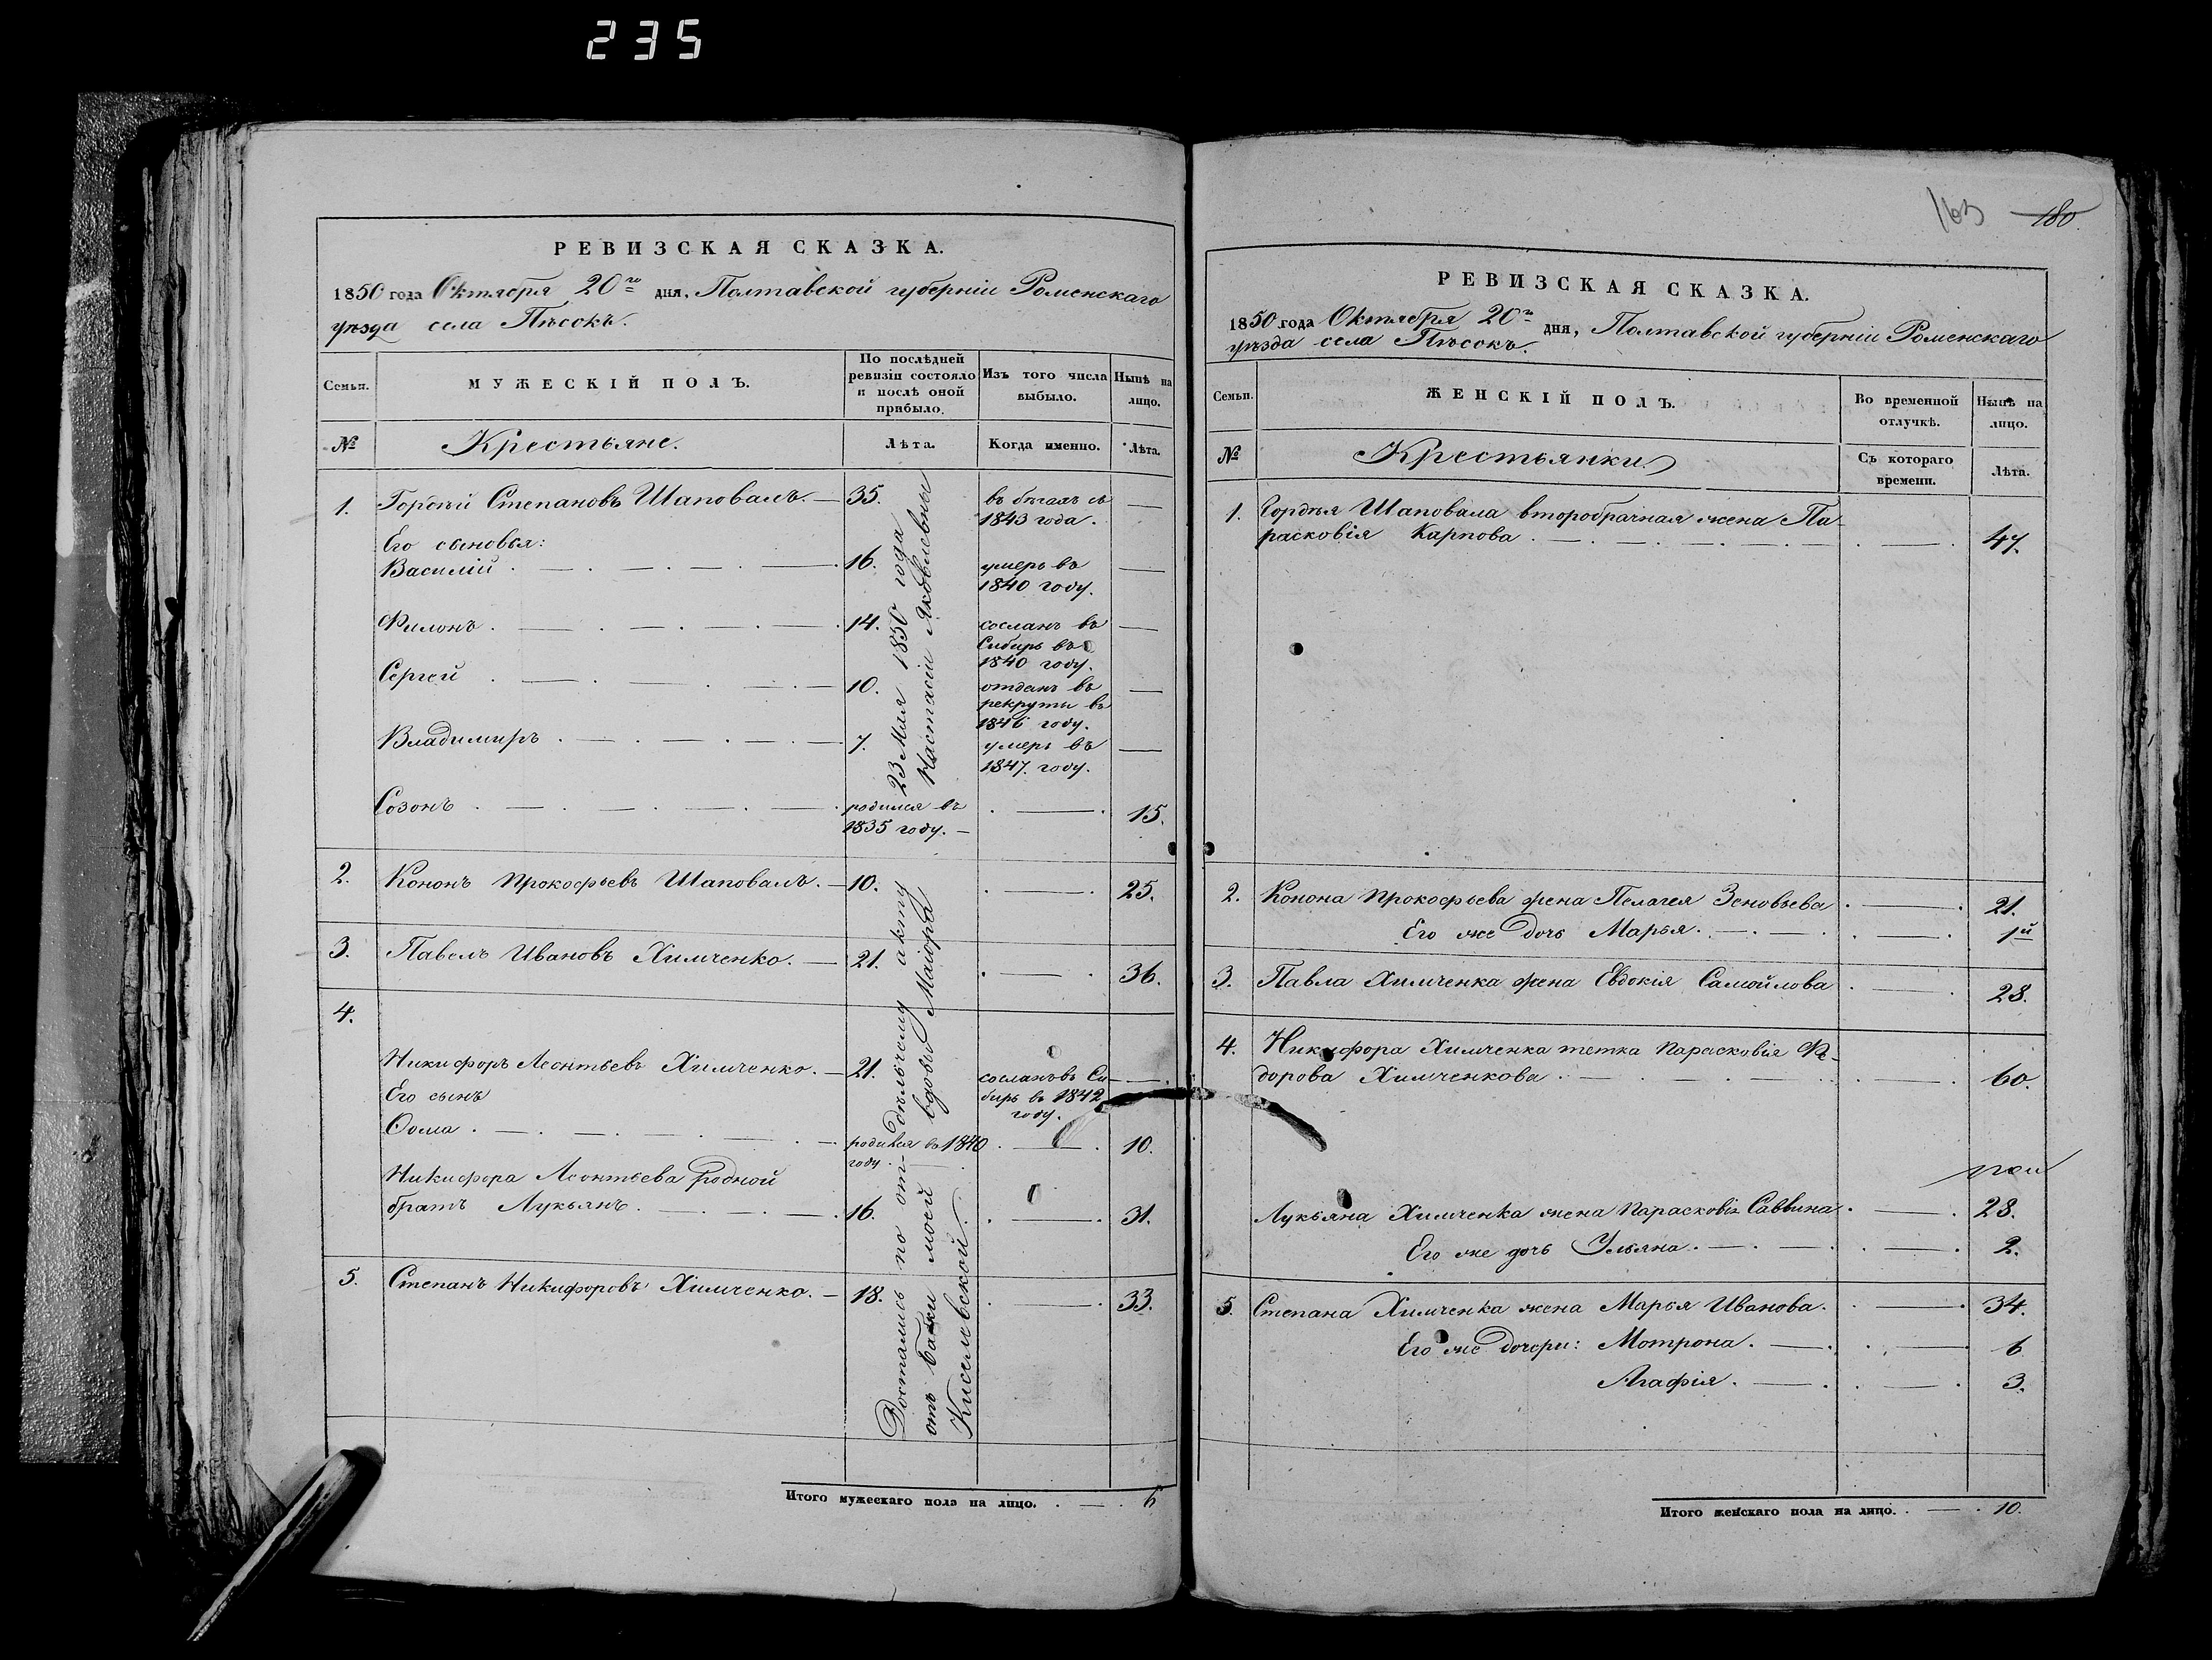 235
РЕВИЗСКАЯ СКАЗКА.
1850 года Октября 20го дня, Полтавской губерніи Роменскаго
уѣзда села Пѣсокъ.
Семьи.
МУЖЕСКІЙ ПОЛЪ.
По послѣдней ревизіи состояло и послѣ оной прибыло.
Изъ того числа выбыло.
Нынѣ на лицо.
№
Крестьяне.
Лѣта.
Когда именно.
Лѣта.
1. Гордѣй Степановъ Шаповалъ. — 35. въ бѣгахъ съ —
1843 года.
Его сыновья:
Василій . — . — . — 16. умеръ въ —
1840 году.
Филонъ . — . — . — 14. сосланъ въ —
Сибирь въ
1840 году.
Сергей . — . — . — 10. отданъ въ —
рекруты въ
1846 году.
Владимиръ . — . — . — 7. умеръ въ —
1847. году.
Созонъ . — . — . — родился въ . — . 15.
1835 году. —
2. Кононъ Прокофьевъ Шаповалъ. — 10. . — . 25.
3. Павелъ Ивановъ Химченко. — 21. . — . 36.
4.
Никифоръ Леонтьевъ Химченко. — 21. сосланъ въ Си- — .
Его сынъ бирь въ 1842
году.
Ѳома . — . — . — родился въ 1840 . — . 10.
году.
Никифора Леонтьева родной
братъ Лукьянъ . — . — . 16. . — . 31.
5. Степанъ Никифоровъ Химченко. — 18. . — . 33.
Достались по отдѣльному акту 23 Мая 1850 года
отъ бабки моей вдовы Маіора Настасіи Яковлевны
Киселевской.
Итого мужескаго пола на лицо. . — . 6
163 180.
РЕВИЗСКАЯ СКАЗКА.
1850 года Октября 20го дня, Полтавской губерніи Роменскаго
уѣзда села Пѣсокъ.
Семьи.
ЖЕНСКІЙ ПОЛЪ.
Во временной отлучкѣ.
Нынѣ на лицо.
№
Крестьянки
Съ котораго времени.
Лѣта.
1. Гордѣя Шаповала второбрачная жена Па-
расковія Карпова . — . — . — . 47.
2. Конона Прокофьева жена Пелагея Зеновьева . — . 21.
Его же дочь Марья. — . — . 1й
3. Павла Химченка жена Евдокія Самойлова . — . 28.
4. Никифора Химченка тетка Парасковія Ѳе-
дорова Химченкова . — . — . — . 60.
Лукьяна Химченка жена Парасковія Саввина . — . 28.
Его же дочь Ульяна. — . — . 2.
5. Степана Химченка жена Марья Иванова. . — . 34.
Его же дочери: Мотрона. — . . — 6
Агафія. — . . — . 3.
Итого женскаго пола на лицо. . — . 10.